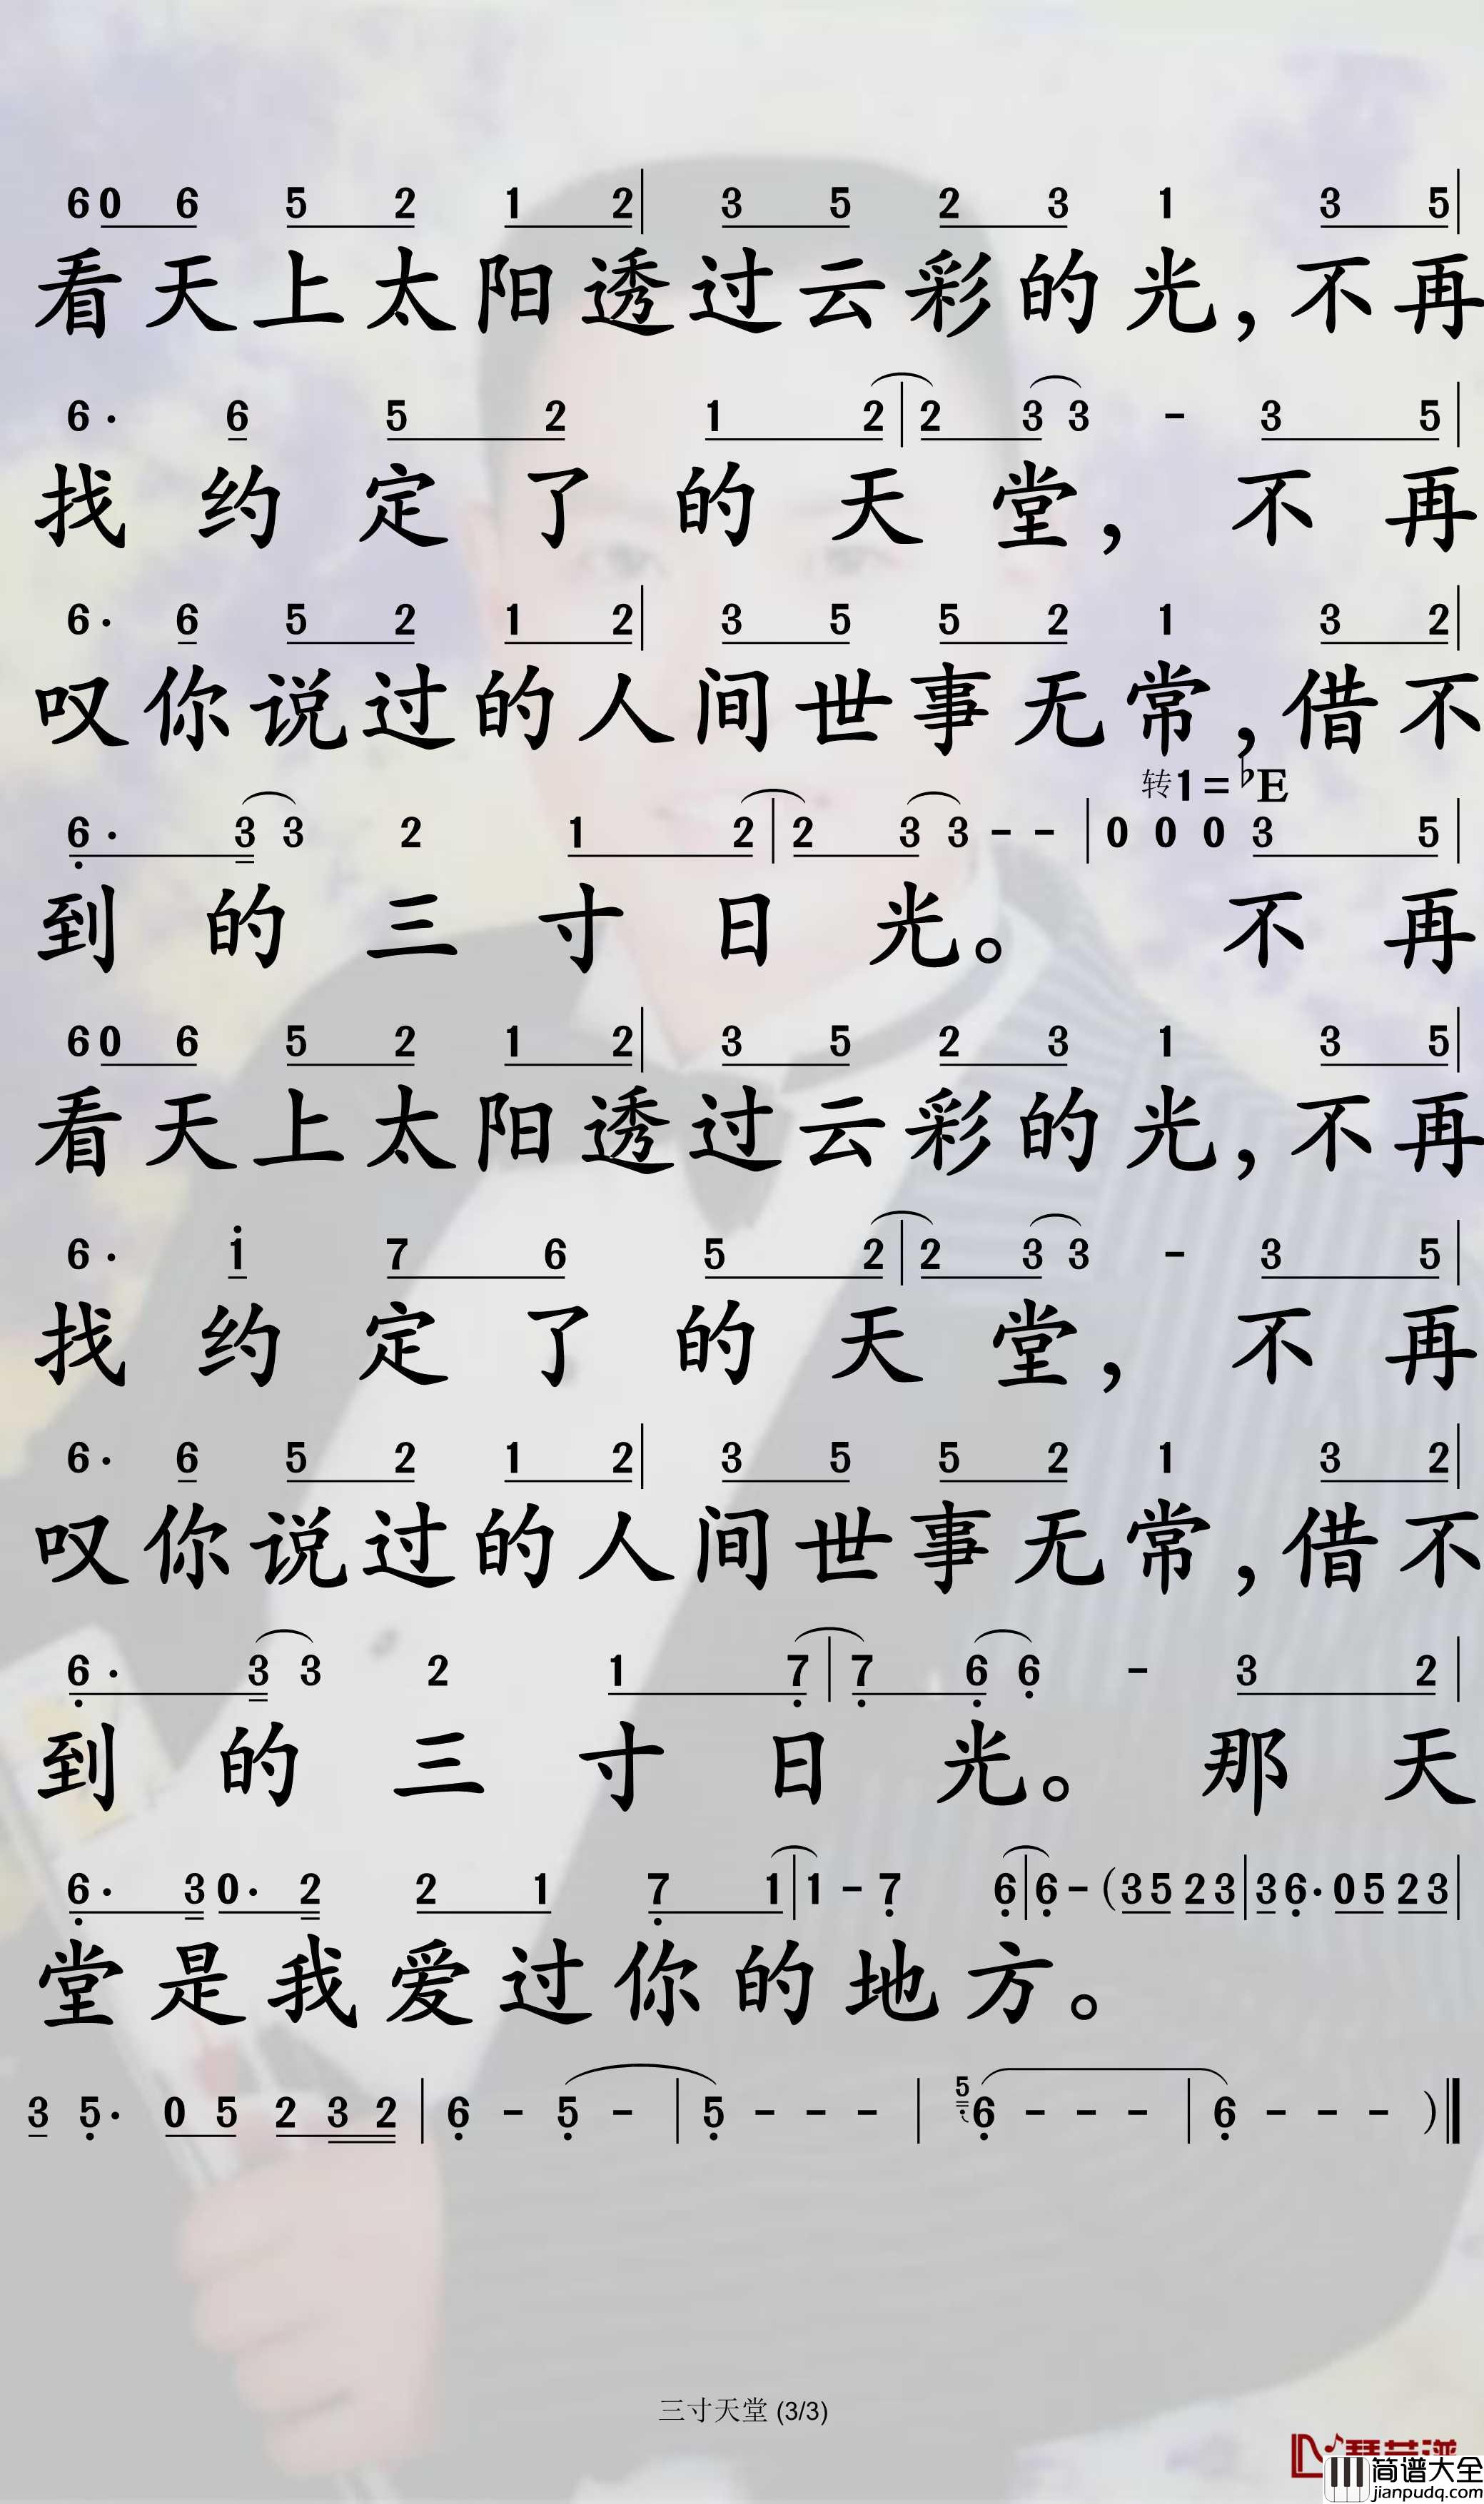 6 0 6 5 2 1 2 | 3 5 2 3 1 3 5 |
看天上太阳透过云彩的光，不再
6· 6 5 2 1 2 | 2 3 3 - 3 5 |
找约定了的天堂，不再
6· 6 5 2 1 2 | 3 5 5 2 1 3 2 |
叹你说过的人间世事无常，借不
转1=♭E
6· 3 3 2 1 2 | 2 3 3 - - | 0 0 0 3 5 |
到的三寸日光。不再
6 0 6 5 2 1 2 | 3 5 2 3 1 3 5 |
看天上太阳透过云彩的光，不再
6· 1 7 6 5 2 | 2 3 3 - 3 5 |
找约定了的天堂，不再
6· 6 5 2 1 2 | 3 5 5 2 1 3 2 |
叹你说过的人间世事无常，借不
6· 3 3 2 1 7 | 7 6 6 - 3 2 |
到的三寸日光。那天
6· 3 0· 2 2 1 7 1 | 1 - 7 6 | 6 - (3 5 2 3 | 3 6· 0 5 2 3 |
堂是我爱过你的地方。
3 5· 0 5 2 3 2 | 6 - 5 - | 5 - - - | 5 6 - - - | 6 - - - ) ‖
三寸天堂 (3/3)
简谱大全
jianpudq.com